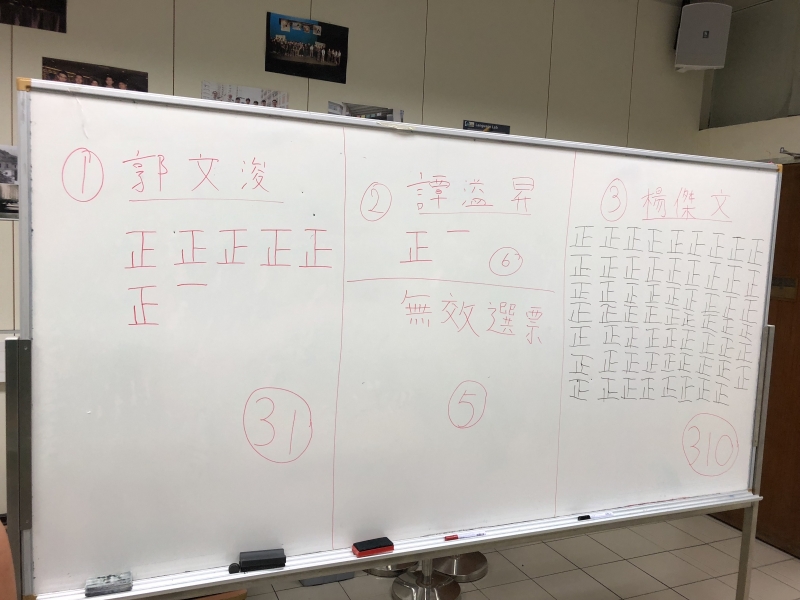 ① 郭文浚
正正正正正
正一
31
② 譚溢昇
正一
6
無效選票
5
③ 楊傑文
正正正正正正正正正
正正正正正正正正正
正正正正正正正正正
正正正正正正正正正
正正正正正正正正正
正正正正正正正正正
正正正正正正正正
310